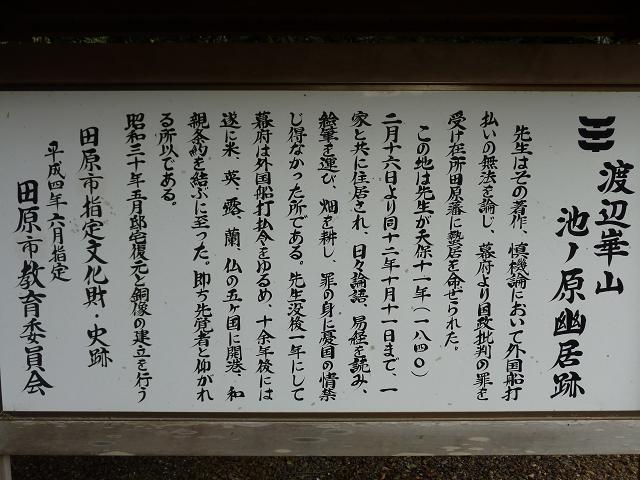 渡辺崋山
池ノ原幽居跡
先生はその著作、慎機論において外国船打
払いの無法を論し、幕府より国政批判の罪を
受け在所田原藩に蟄居を命ぜられた。
この地は先生が天保十一年(一八四〇)
二月十六日より同十二年十月十一日まで、一
家と共に住居され、日々論語、易経を読み、
絵筆を運び、畑を耕し、罪の身に憂国の情禁
じ得なかった所である。先生没後一年にして
幕府は外国船打払令をゆるめ、十余年後には
遂に米、英、露、蘭、仏の五ヶ国に開港、和
親条約を結ぶに至った。即ち先覚者と仰がれ
る所以である。
昭和三十年五月邸宅復元と銅像の建立を行う
田原市指定文化財・史跡
平成四年六月指定
田原市教育委員会